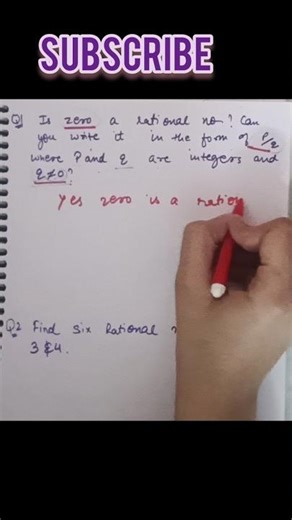 SUBSCRIBE
Q1 Is zero a rational no? Can
you write it in the form of P/q
where P and q are integers and
q≠0?
Yes zero is a ration
Q2 Find six Rational
3 & 4.